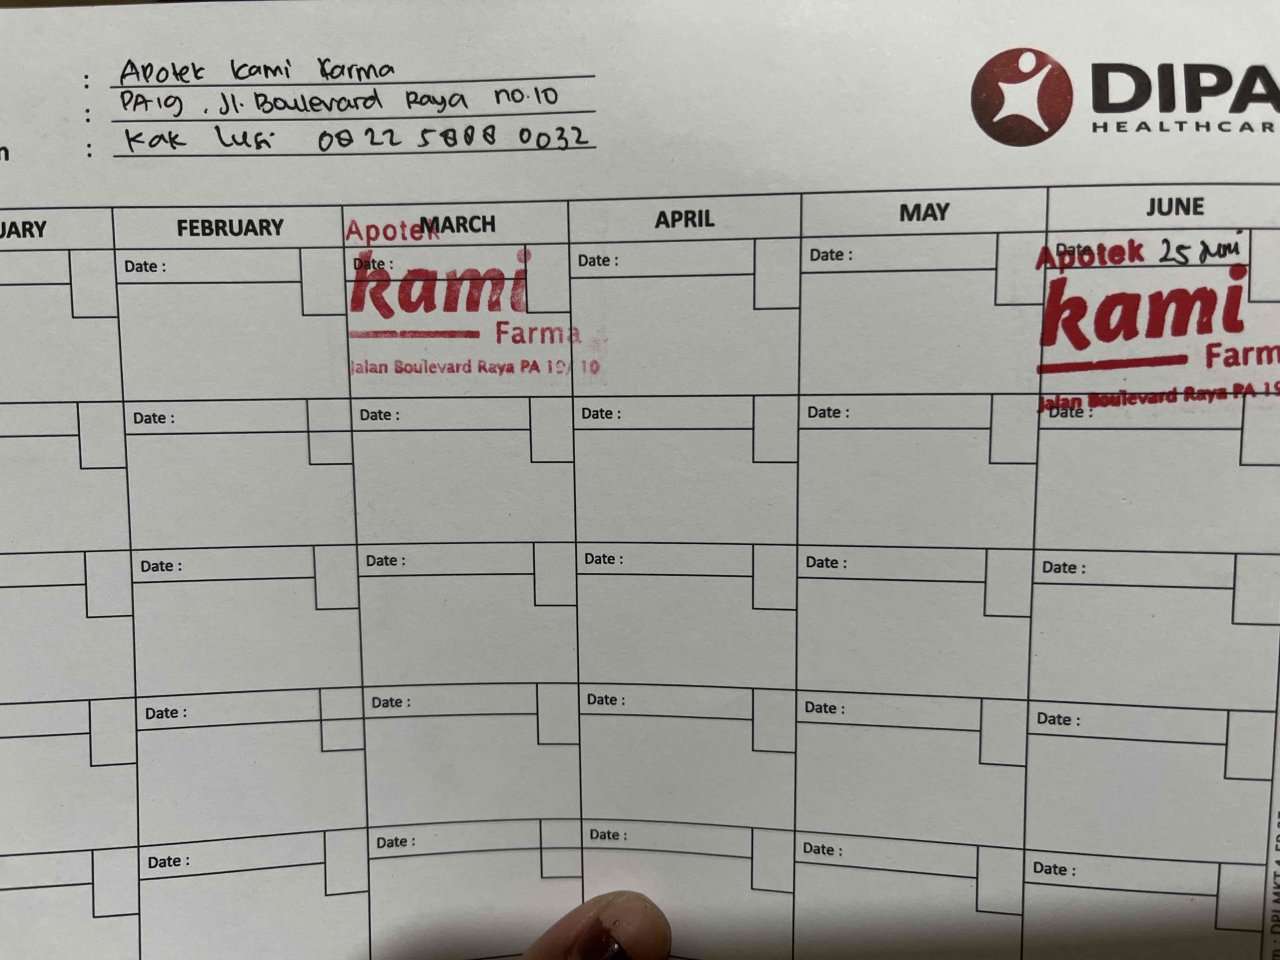 : Apotek Kami Farma
: PA19 . Jl. Boulevard Raya no.10
: Kak Lusi 0822 5888 0032
DIPA
HEALTHCAR
UARY FEBRUARY MARCH APRIL MAY JUNE
Date : Date : Date : Date : Date : 25 Juni
Apotek
kami
Farma
Jalan Boulevard Raya PA 19/ 10
Apotek
kami
Farm
Jalan Boulevard Raya PA 19
Date : Date : Date : Date : Date :
Date : Date : Date : Date : Date :
Date : Date : Date : Date : Date :
Date : Date : Date : Date : Date :